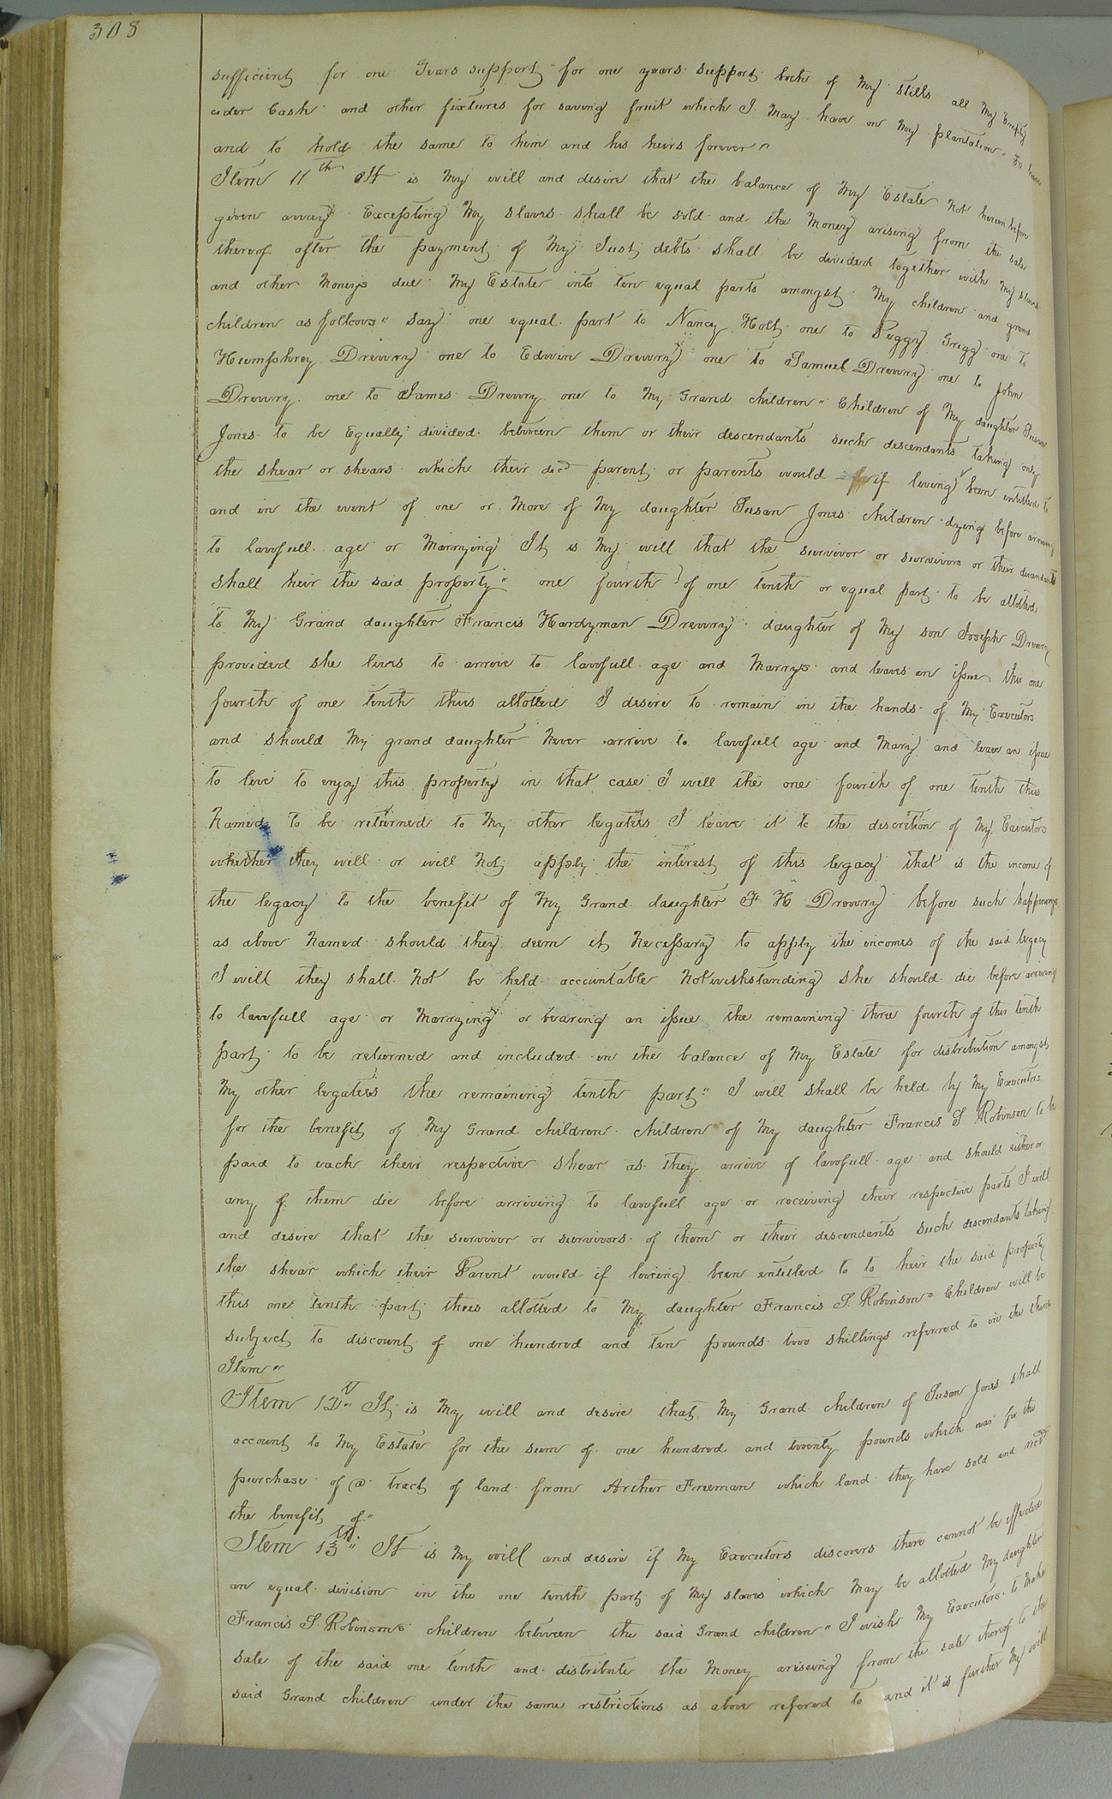 308
sufficient for one Years support for one years support both of My stills all My Empty
cider Cask and other fixtures for saving fruit which I May have on My plantation To have
and to hold the same to him and his heirs forever"
Item 11th It is My will and desire that the balance of My Estate Not herein before
given away Excepting My slaves shall be sold and the Money arising from the sale
thereof after the payment of My Just debts shall be divided together with My slaves
and other Moneys due My Estate into ten equal parts amongst My children and grand
children as follows" Say one equal part to Nancy Holt one to Peggy Grigg one to
Humphrey Drewry one to Edwin Drewry one to Samuel Drewry one to John
Drewry. one to James Drewry one to My Grand children" Children of My daughter Susan
Jones to be Equally divided between them or their descendants such descendants taking only
the shear or shears which their decd parent or parents would if living been intitled to
and in the event of one or More of My daughter Susan Jones children dying before arriving
to lawfull age or Marrying It is My will that the survivor or survivors or their descendants
shall heir the said property" one fourth of one tenth or equal part to be allotted
to My Grand daughter Francis Hardyman Drewry daughter of My son Joseph Drewry
provided she lives to arrive to lawfull age and Marrys and leaves an issue this one
fourth of one tenth thus allotted I desire to remain in the hands of My Executors
and should My grand daughter Never arrive to lawfull age and Mary and leave an issue
to live to enjoy this property in that case I will the one fourth of one tenth thus
Named to be returned to My other legatees I leave it to the discretion of My Executors
whether they will or will Not apply the interest of this legacy that is the income of
the legacy to the benefit of My Grand daughter F H Drewry before such happenings
as above Named should they deem it Necessary to apply the incomes of the said legacy
I will they shall Not be held accountable Notwithstanding she should die before arriving
to lawfull age or Marrying or bearing an issue the remaining three fourth of this tenth
part to be returned and included in the balance of My Estate for distribution amongst
My other legatees the remaining tenth part" I will shall be held by My Executors
for the benefit of My Grand children children of My daughter Francis S Robinson to be
paid to each their respective shear as they arrive of lawfull age and should either or
any of them die before arriving to lawfull age or receiving their respective parts I will
and desire that the survivor or survivors of them or their descendants such descendants taking
the shear which their Parent would if living been entitled to to heir the said property
this one tenth part thus allotted to My daughter Francis S. Robinson" Children will be
subject to discount of one hundred and ten pounds two shillings referred to in the
Item"
Item 12" It is My will and desire that My Grand children of Susan Jones shall
account to My Estate for the sum of one hundred and twenty pounds which was for the
purchase of a tract of land from Archer Freeman which land they have sold and recd
the benefit of"
Item 13th" It is My will and desire if My Executors discovers there cannot be effected
an equal division in the one tenth part of My slaves which May be allotted My daughter
Francis S. Robinsons children between the said Grand children" I wish My Executors to Make
sale of the said one tenth and distribute the Money ariseing from the sale thereof to the
said Grand children under the same restrictions as above refered to and it is further My will